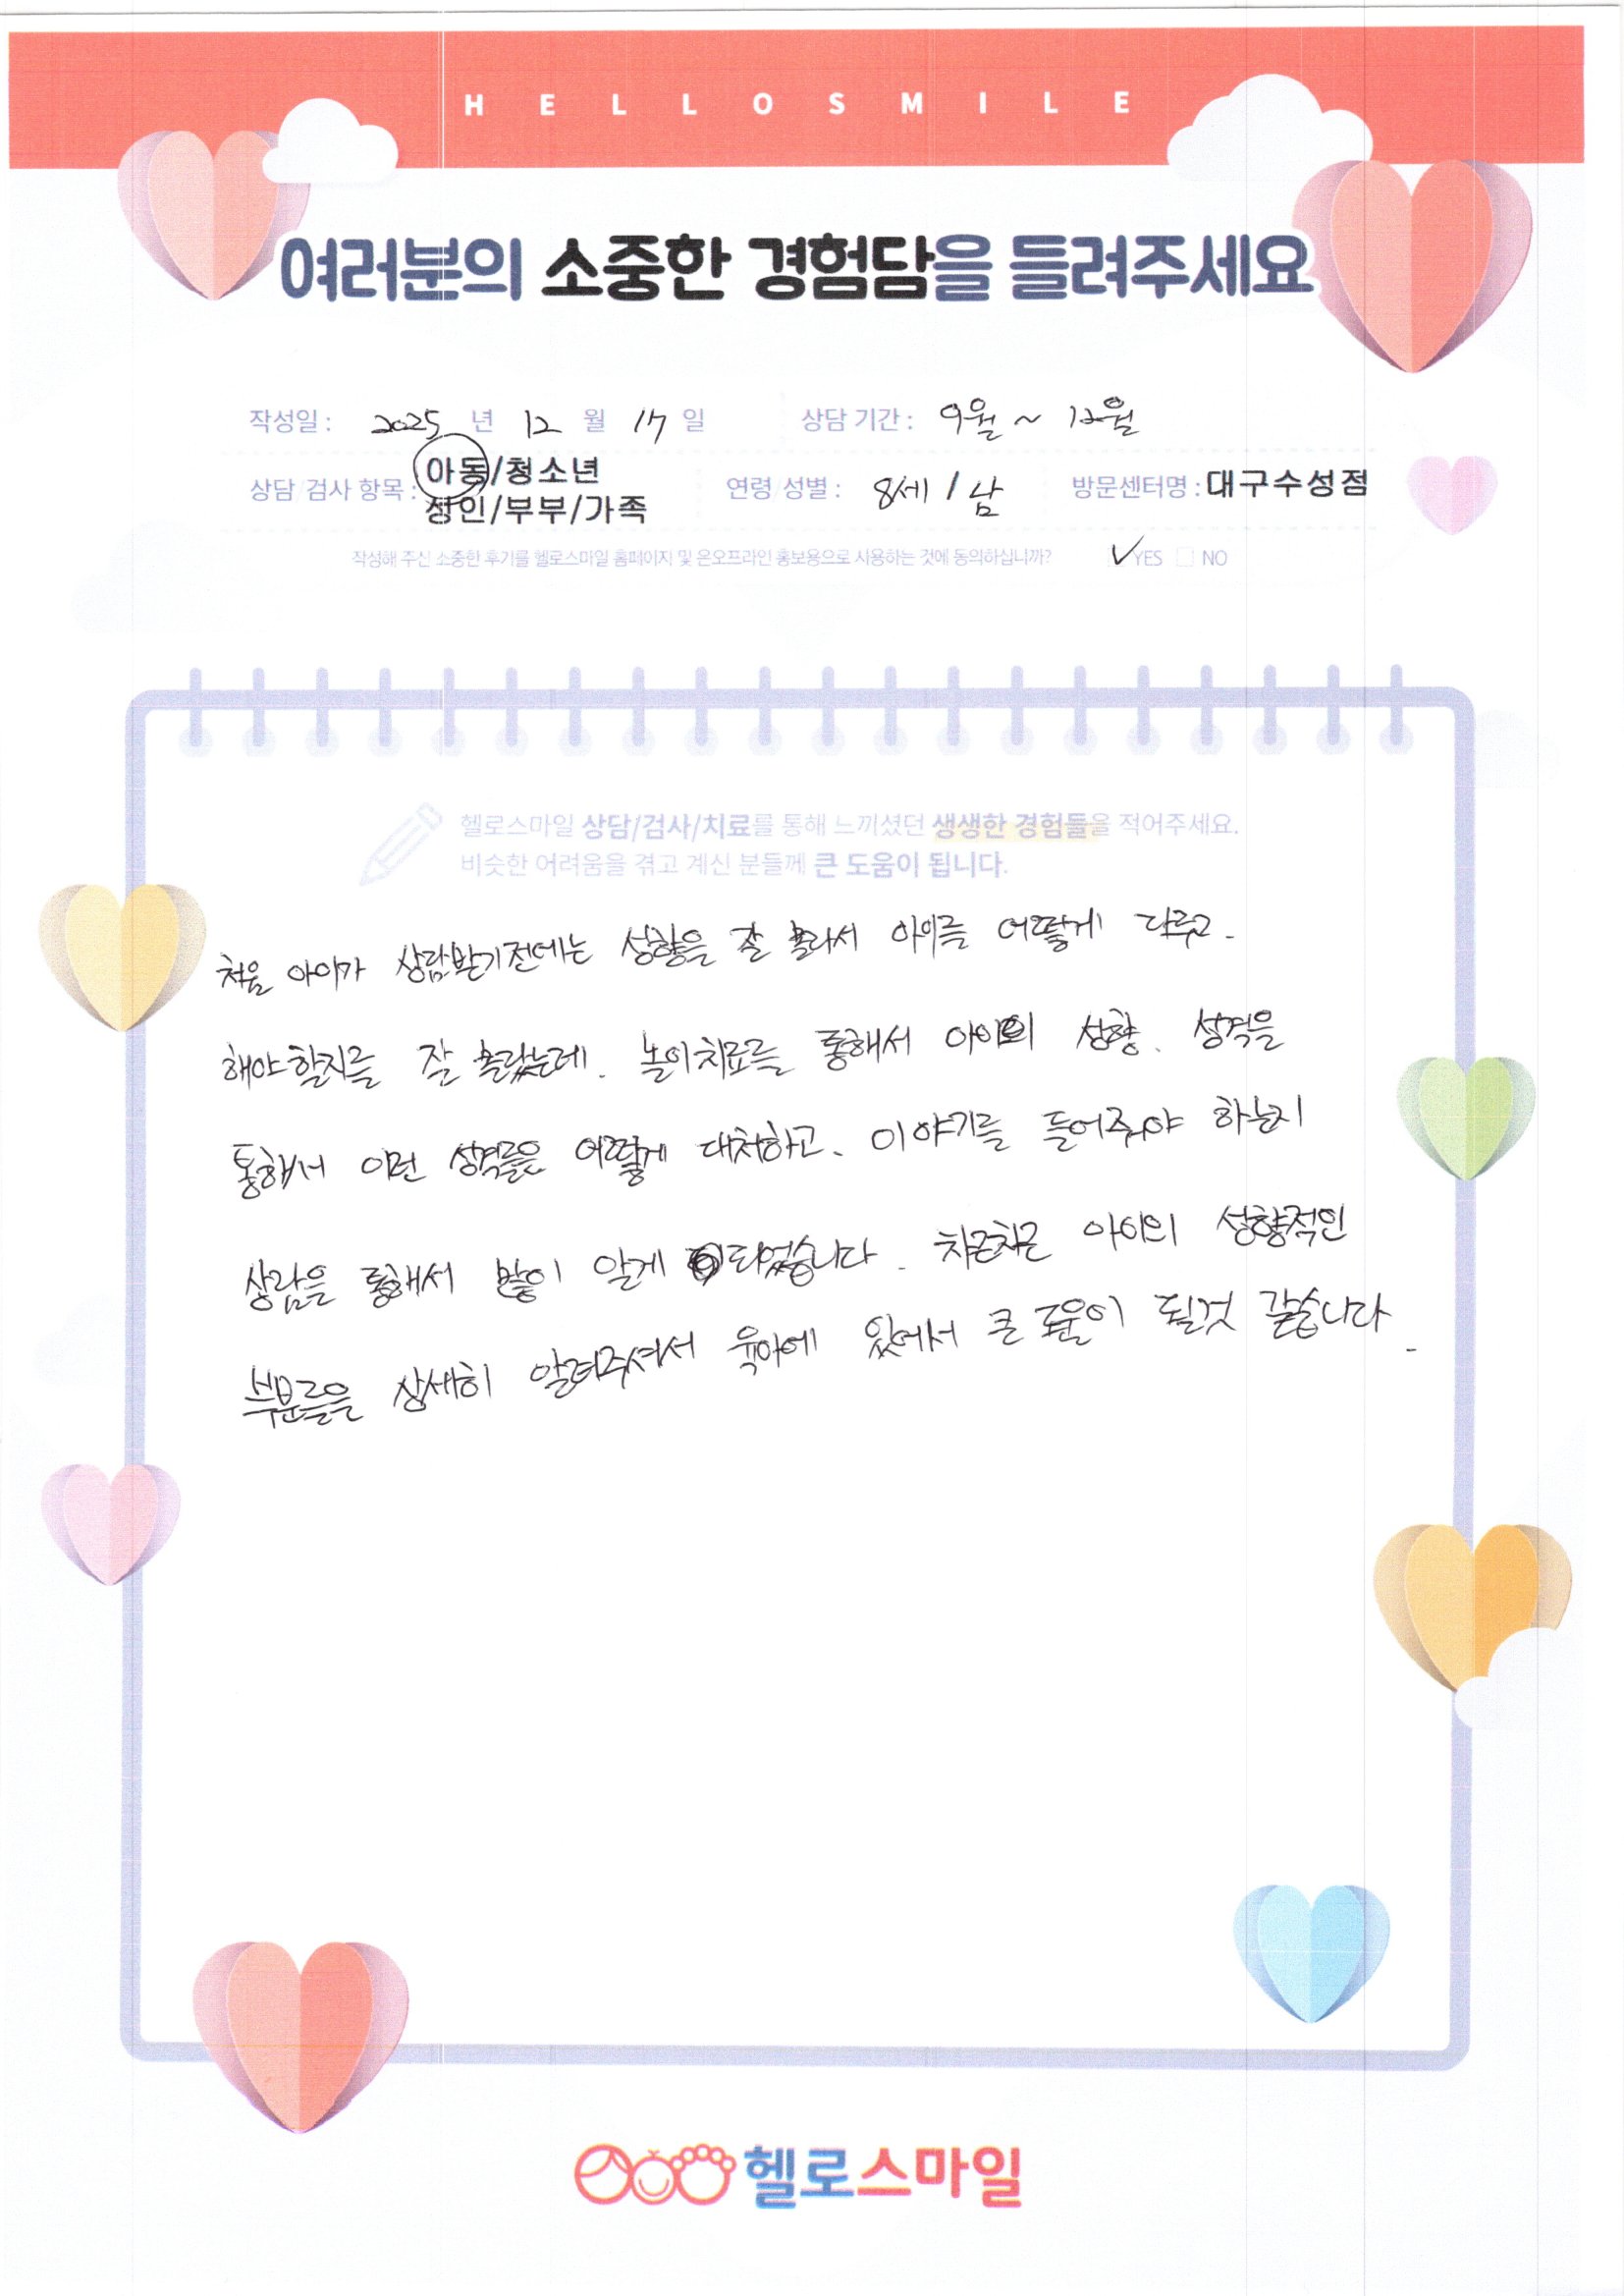 HELLOSMILE
여러분의 소중한 경험담을 들려주세요
작성일 : 2025 년 12 월 17 일 상담 기간 : 9월 ~ 12월
상담/검사 항목 : 아동/청소년
성인/부부/가족
연령/성별 : 8세 / 남 방문센터명 : 대구수성점
작성해 주신 소중한 후기를 헬로스마일 홈페이지 및 온오프라인 홍보용으로 사용하는 것에 동의하십니까? ✓YES □ NO
헬로스마일 상담/검사/치료를 통해 느끼셨던 생생한 경험들을 적어주세요.
비슷한 어려움을 겪고 계신 분들께 큰 도움이 됩니다.
처음 아이가 상담받기전에는 성향을 잘 몰라서 아이를 어떻게 다루고.
해야할지를 잘 몰랐는데. 놀이치료를 통해서 아이의 성향. 성격을
통해서 이런 성격들은 어떻게 대처하고. 이야기를 들어줘야 하는지
상담을 통해서 많이 알게 되었습니다. 차근차근 아이의 성향적인
부분들을 상세히 알려주셔서 육아에 있어서 큰 도움이 될것 같습니다.
헬로스마일